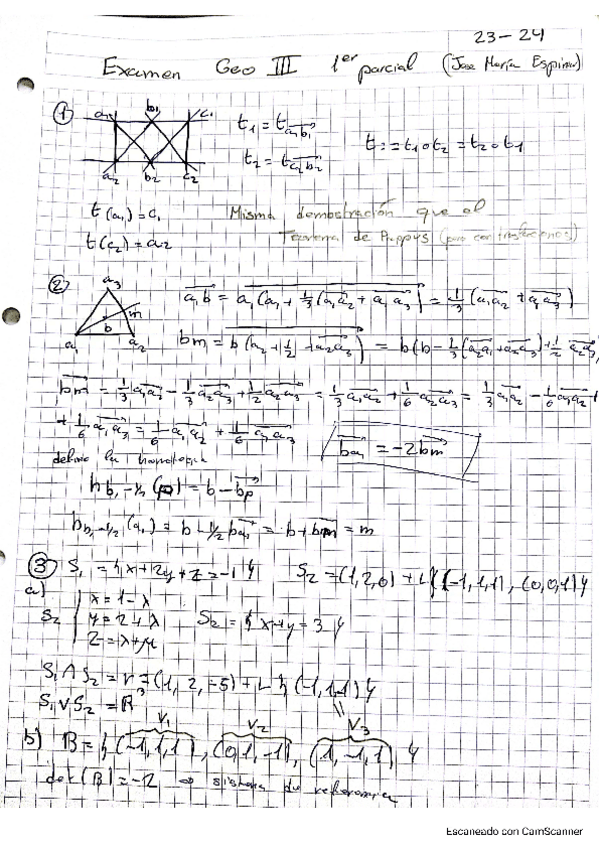 23-24
Examen Geo III 1er parcial (Jose María Espinar)
① a₁ b₁ c₁
t₁ = t a₁b₁
t₂ = t c₂b₂
t := t₁∘t₂ = t₂∘t₁
a₂ b₂ c₂
t(a₁) = c₁
t(c₂) = a₂
Misma demostración que el
Teorema de Pappus (pero con traslaciones)
② a₃ m b a₁ a₂
a₁b = a₁(a₁ + 1/3(a₁a₂ + a₁a₃)) = 1/3(a₁a₂ + a₁a₃)
bm = b(a₂ + 1/2 a₂a₃) = b(b - 1/3(a₂a₁ + a₂a₃) + 1/2 a₂a₃)
bm = 1/3 a₁a₂ - 1/3 a₂a₃ + 1/2 a₂a₃ = 1/3 a₁a₂ + 1/6 a₂a₃ = 1/3 a₁a₂ - 1/6 a₁a₂
+ 1/6 a₁a₃ = 1/6 a₁a₂ + 1/6 a₁a₃
ba₁ = -2bm
defino la homotecia
h b,-1/2 (p) = b - bp
h b,-1/2 (a₁) = b - 1/2 ba₁ = b + bm = m
③ S₁ = { x + 2y + z = -1 } S₂ = (1, 2, 0) + L{(-1, 1, 1), (0, 0, 1)}
a)
S₂ { x = 1 - λ
y = 2 + λ
z = λ + μ
S₂ = { x + y = 3 }
S₁ ∩ S₂ = r = (1, 2, -5) + L{(-1, 1, -1)}
S₁ ∨ S₂ = R³
v₁ v₂ v₃
b) B = { (-1, 1, 1), (0, 1, -1), (1, -1, 1) }
det(B) = -2 ⇒ sistema de referencia
Escaneado con CamScanner